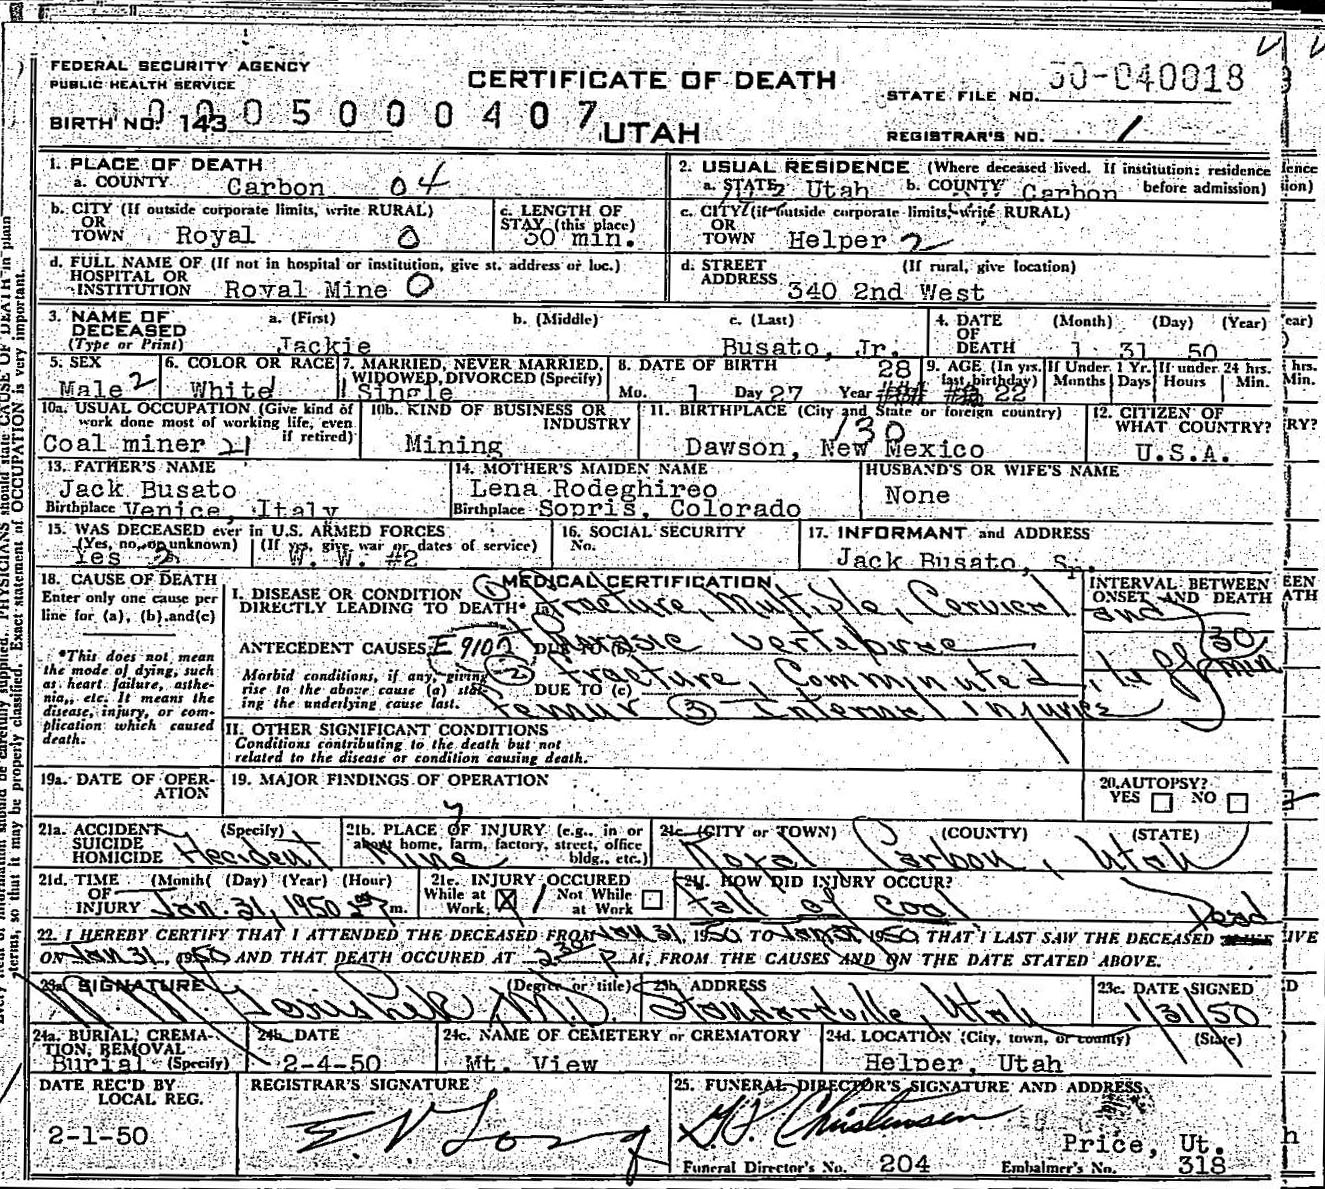 FEDERAL SECURITY AGENCY
PUBLIC HEALTH SERVICE
CERTIFICATE OF DEATH
STATE FILE NO. 50-040018
BIRTH NO. 143 0005000407
UTAH
REGISTRAR'S NO. 1
1. PLACE OF DEATH
a. COUNTY Carbon 04
2. USUAL RESIDENCE (Where deceased lived. If institution: residence before admission)
a. STATE Utah b. COUNTY Carbon
b. CITY (If outside corporate limits, write RURAL)
OR
TOWN Royal 0
c. LENGTH OF
STAY (this place)
30 min.
c. CITY (if outside corporate limits, write RURAL)
OR
TOWN Helper 2
d. FULL NAME OF (If not in hospital or institution, give st. address or loc.)
HOSPITAL OR
INSTITUTION Royal Mine 0
d. STREET (If rural, give location)
ADDRESS 340 2nd West
3. NAME OF DECEASED
(Type or Print)
a. (First) b. (Middle) c. (Last)
Jackie Busato, Jr.
4. DATE OF DEATH (Month) (Day) (Year)
1 31 50
5. SEX
Male 2
6. COLOR OR RACE
White 1
7. MARRIED, NEVER MARRIED,
WIDOWED, DIVORCED (Specify)
1 Single
8. DATE OF BIRTH 28
Mo. 1 Day 27 Year
9. AGE (In yrs. last birthday) 22
If Under 1 Yr. Months Days
If under 24 hrs. Hours Min.
10a. USUAL OCCUPATION (Give kind of
work done most of working life, even
if retired)
Coal miner 21
10b. KIND OF BUSINESS OR
INDUSTRY
Mining
11. BIRTHPLACE (City and State or foreign country)
130
Dawson, New Mexico
12. CITIZEN OF
WHAT COUNTRY?
U.S.A.
13. FATHER'S NAME
Jack Busato
Birthplace Venice, Italy
14. MOTHER'S MAIDEN NAME
Lena Rodeghireo
Birthplace Sopris, Colorado
HUSBAND'S OR WIFE'S NAME
None
15. WAS DECEASED ever in U.S. ARMED FORCES
(Yes, no, or unknown) (If yes, give war or dates of service)
Yes 2 W. W. #2
16. SOCIAL SECURITY
No.
17. INFORMANT and ADDRESS
Jack Busato, Sr.
18. CAUSE OF DEATH
Enter only one cause per
line for (a), (b) and (c)
*This does not mean
the mode of dying, such
as heart failure, asthe-
nia, etc. It means the
disease, injury, or com-
plication which caused
death.
MEDICAL CERTIFICATION
I. DISEASE OR CONDITION
DIRECTLY LEADING TO DEATH* (a) 1 Fracture, Multiple, Cervical and
ANTECEDENT CAUSES E 9102 DUE TO (b) thorasic vertebrae
Morbid conditions, if any, giving
rise to the above cause (a) stat-
ing the underlying cause last.
DUE TO (c) 2 Fracture, Comminuted, left
femur 3 Internal injuries
INTERVAL BETWEEN
ONSET AND DEATH
30 min
II. OTHER SIGNIFICANT CONDITIONS
Conditions contributing to the death but not
related to the disease or condition causing death.
19a. DATE OF OPER-
ATION
19. MAJOR FINDINGS OF OPERATION
20. AUTOPSY?
YES NO
21a. ACCIDENT (Specify)
SUICIDE
HOMICIDE Accident
21b. PLACE OF INJURY (e.g., in or
about home, farm, factory, street, office
bldg., etc.)
Mine
21c. (CITY or TOWN) (COUNTY) (STATE)
Royal Carbon, Utah
21d. TIME (Month) (Day) (Year) (Hour)
OF
INJURY Jan. 31, 1950 m.
21e. INJURY OCCURED
While at Work X Not While at Work
21f. HOW DID INJURY OCCUR?
fall of coal
Dead
22. I HEREBY CERTIFY THAT I ATTENDED THE DECEASED FROM Jan 31, 1950 TO Jan 31 1950, THAT I LAST SAW THE DECEASED
ON Jan 31, 1950 AND THAT DEATH OCCURED AT 2:30 P M, FROM THE CAUSES AND ON THE DATE STATED ABOVE.
23a. SIGNATURE (Degree or title)
M.D.
23b. ADDRESS
Standardville, Utah
23c. DATE SIGNED
1/31/50
24a. BURIAL, CREMA-
TION, REMOVAL
Burial (Specify)
24b. DATE
2-4-50
24c. NAME OF CEMETERY or CREMATORY
Mt. View
24d. LOCATION (City, town, or county) (State)
Helper, Utah
DATE REC'D BY
LOCAL REG.
2-1-50
REGISTRAR'S SIGNATURE
25. FUNERAL DIRECTOR'S SIGNATURE AND ADDRESS
Christensen
Price, Ut.
Funeral Director's No. 204 Embalmer's No. 318